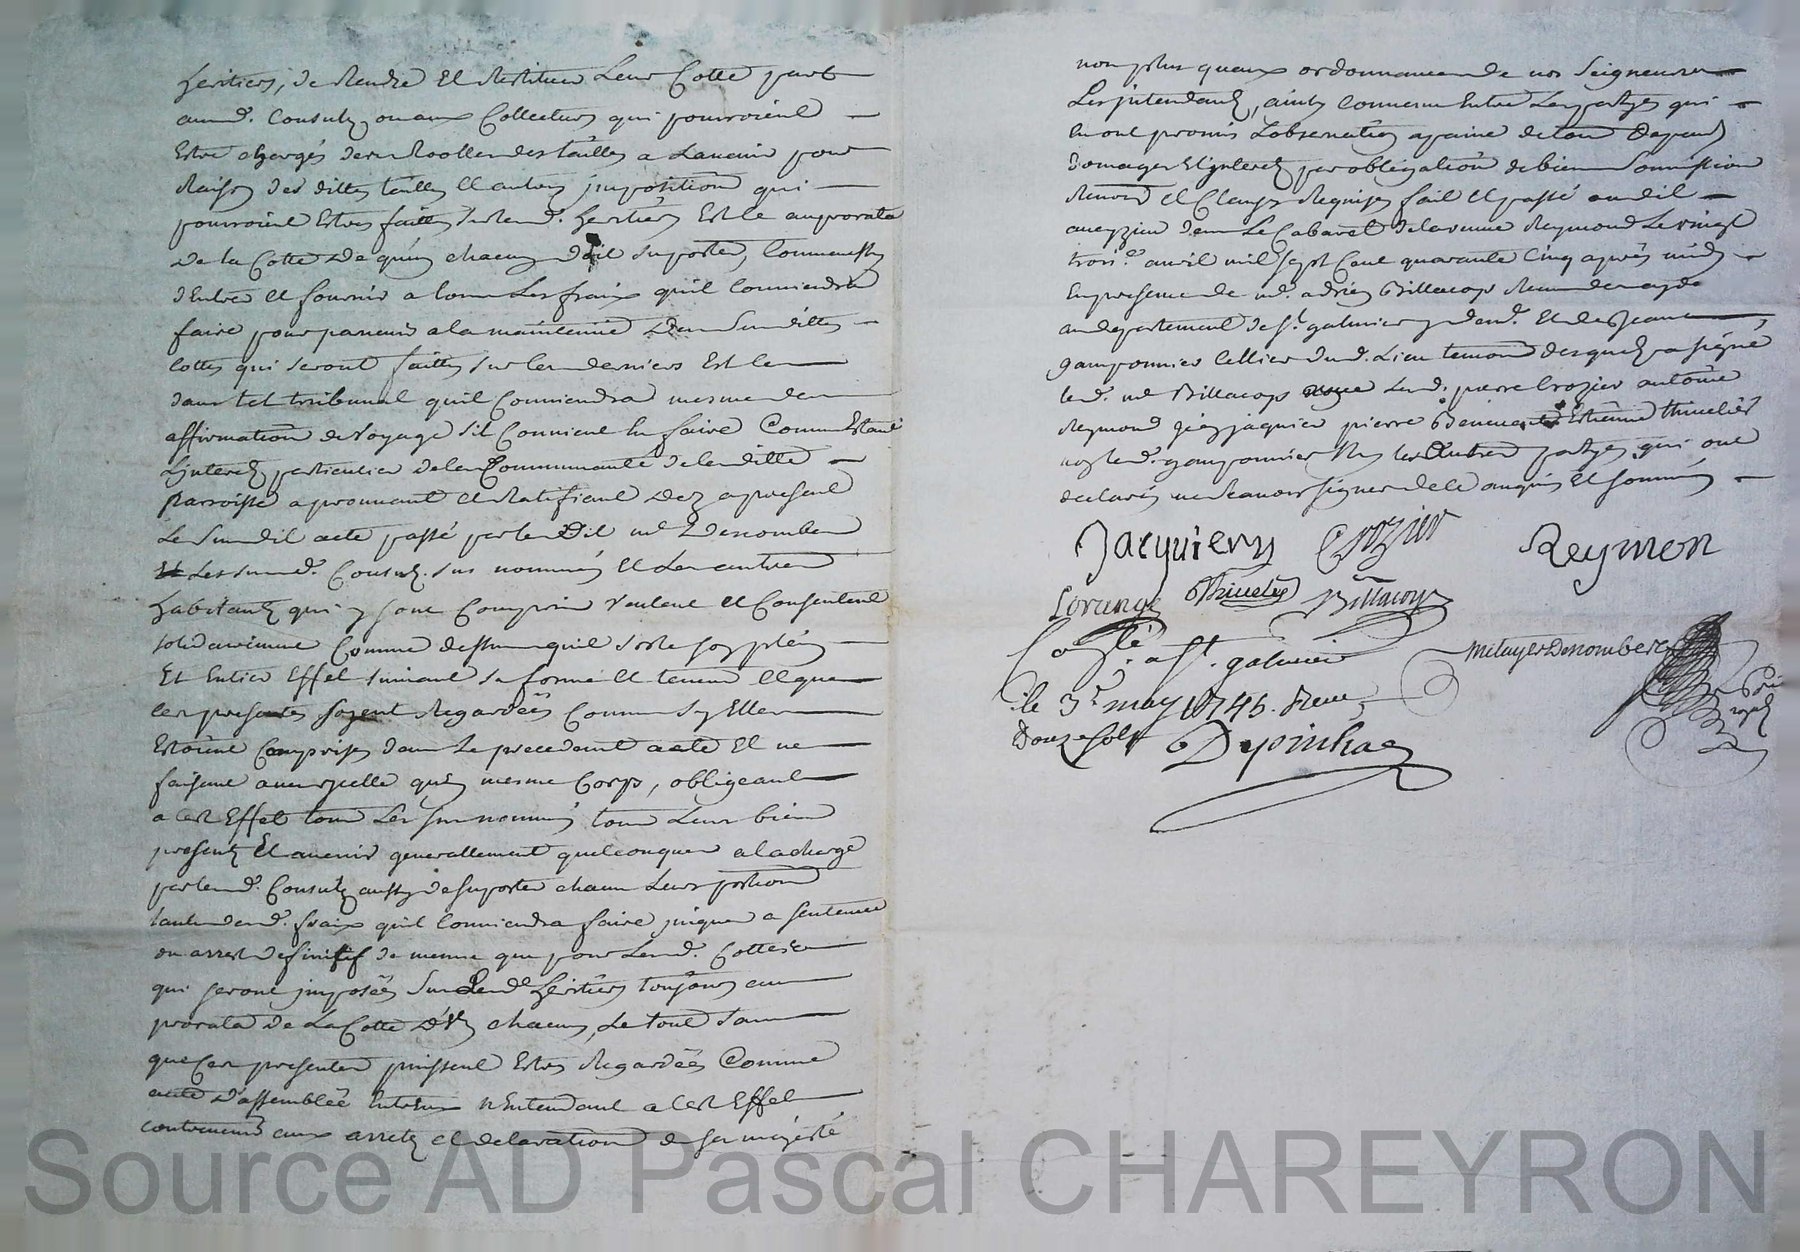 heritiers, de Rendre et Restituer Leur Cotte part
aud. Consulz, ou aux Collecteurs qui pourroient
Estre chargés des Roolles des tailles a Lavenir pour
Raison des dittes tailles et autres jmposition qui
pourroient Estres faittes sur lesd. heritiers Est Le auprorata
De la Cotte De qu'un chacun doit suporter, Comme aussy
d'Entrer et fournir a tous Les fraix qu'il Conviendra
faire pour parvenir a la maintenue Des susdittes
Cottes qui seront faittes sur les derniers Est ce
dans tel tribunal qu'il Conviendra mesme des
affirmation de voyage s'il Convient En faire Comme Estant
L'jnterest particulier de la Communauté de laditte
Parroisse aprouvant et Ratifiant Dez apresent
Le susdit acte passé par Ledit me Denombre
Les susd. Consulz. sus nommés et Les autres
habitants qui y sont Compris veulent et Consentent
solidairement Comme dessus qu'il sorte son plein
Et Entier Effet suivant sa forme et teneur et que
les presentes soyent Regardées Comme sy Elles
Estoient Comprises dans Le precedent acte Et ne
faisant avec jcelle qu'un mesme Corps, obligeant
a cest Effet tous Les sus nommés tous Leurs biens
presents Et avenir generallement quelconques a la charge
par lesd. Consulz aussy de suporter chacun Leurs portion
tant desd. fraix qu'il Conviendra faire jusques a sentence
ou arrest definitif de mesme que pour Lesd. Cottes
qui seront jmposées sur Lesd. heritiers toujours au
prorata de La Cotte D'Un chacun, Le tout sans
que Ces presentes puissent Estres Regardées Comme
acte D'assemblée Entreux N'Entendant a Cest Effet
contrevenir aux arrets et declaration de sa majesté
non plus quaux ordonnances de nos Seigneurs
Les jntendants, ainsy Convenu Entre Les partyes qui
En ont promis L'observation a paine de tous Depans
Domages Et jnterets par obligation de biens soumission
Renon et Clauses Requises fait et passé audit
aveyzieu dans Le Cabaret de la veuve Reymond Le vingt
trois.e avril mil sept Cent quarante Cinq après midy
En presence de me. adrien Billacoys Receveur des aydes
au departement de st. galmier y dem. Et de Jean
gamponnier Cellier dud. Lieu temoins desquels a signé
led. me Billacoys avec Lesd. pierre Crozier antoine
Reymond Jean jaquier pierre Estienne thivelier
non led. gamponnier Ny les autres partyes qui ont
declarés ne scavoir signer de Ce anquis Et sommés
Jacquiery Crozier Reymon
Thivelier Billacoys
Conlé. a st. galmier
le 3e may 1745. Receu
Douze sols Depinhac
metayer Denombre
Source AD Pascal CHAREYRON